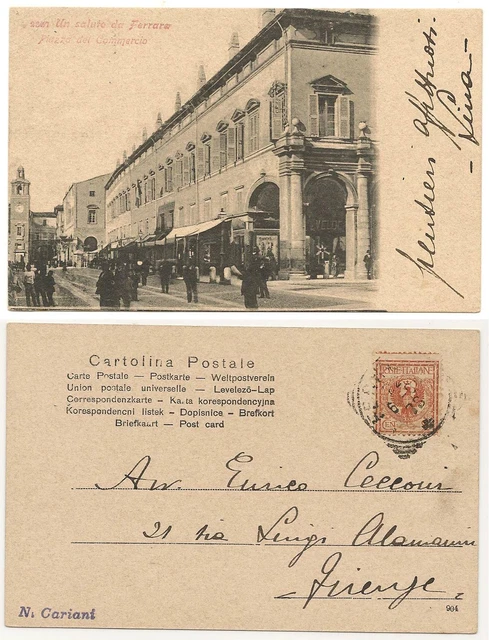 Un saluto da Ferrara
Piazza del Commercio
pensieri affettuosi.
- Lina -
Cartolina Postale
Carte Postale — Postkarte — Weltpostverein
Union postale universelle — Levelező-Lap
Correspondenzkarte - Karta korespondencyjna
Korespondencni listek - Dopisnice - Brefkort
Briefkaart — Post card
POSTE ITALIANE
Avv. Enrico Cecconi
21 via Luigi Alamanni
- Firenze -
N. Cariani
904